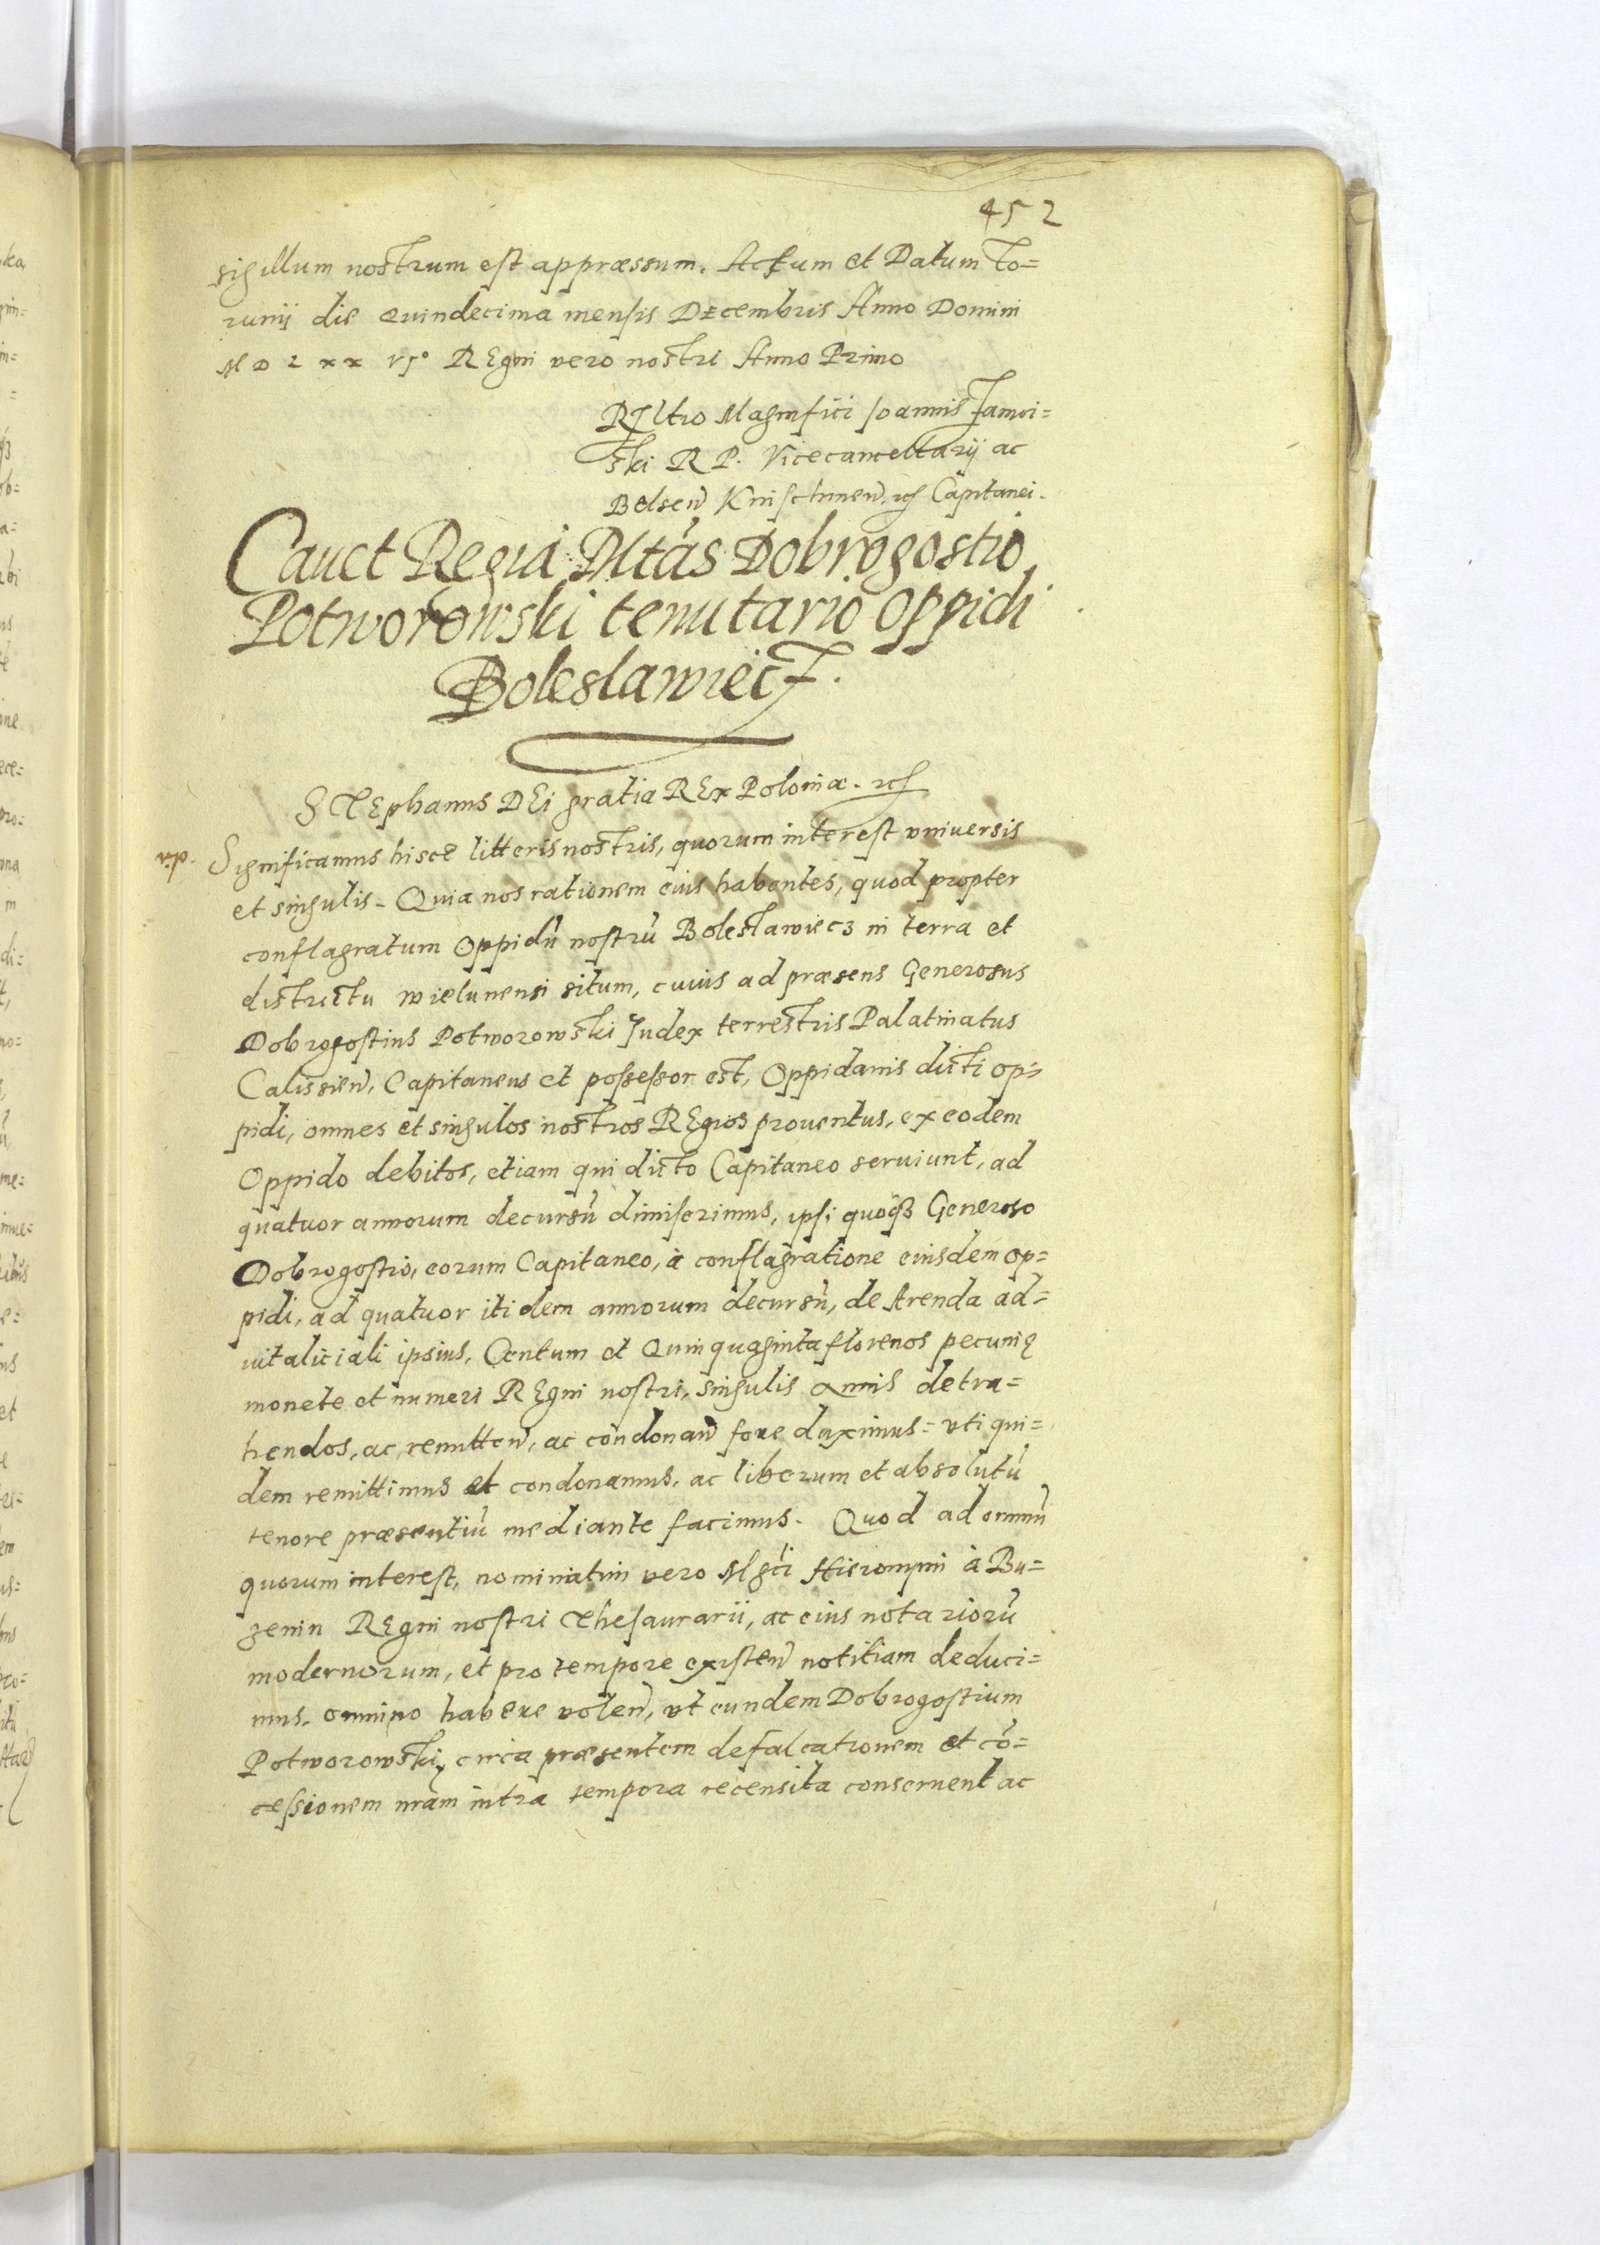 452
sigillum nostrum est appræssum. Actum et Datum To=
runij die quindecima mensis DEcembris Anno Domini
M D L xx VJ° REgni vero nostri Anno Primo
Rltio Magnifici Joannis Zamoi=
ski R P. Vicecancellarij ac
Belsen̄ Knischinen̄, etc Capitanei.
Cauet Regia Mtās Dobrogostio
Potworowski tenutario oppidi
Boleslawiecz.
STEphanus DEi gratia REx Poloniæ. etc
Significamus hisce litteris nostris, quorum interest vniuersis
et singulis. Quia nos rationem eius habentes, quod propter
conflagratum oppidū nostrū Boleslawiecz in terra et
districtu wielunensi situm, cuius ad præsens Generosus
Dobrogostius Potworowski Judex terrestris Palatinatus
Calissien̄, Capitaneus et possessor est, Oppidanis dicti op=
pidi, omnes et singulos nostros REgios prouentus, ex eodem
Oppido debitos, etiam qui dicto Capitaneo seruiunt, ad
quatuor annorum decursū dimiserimus, ipsi quoqȝ Generoso
Dobrogostio, eorum Capitaneo, à conflagratione eiusdem op=
pidi, ad quatuor itidem annorum decursū, de Arenda ad=
uitaliciali ipsius, Centum et Quinquaginta florenos pecunię
monete et numeri REgni nostri, singulis annis detra=
hendos, ac remitten̄, ac condonan̄ fore duximus= vti qui=
dem remittimus et condonamus, ac liberum et absolutū
tenore præsentiū mediante facimus. Quod ad omniū
quorum interest, nominatim vero Mgci Hieronymi à Bu=
zenin REgni nostri Thesaurarii, ac eius notariorū
modernorum, et pro tempore existen̄ notitiam deduci=
mus. omnino habere volen̄, vt eundem Dobrogostium
Potworowski, circa præsentem defalcationem et cō=
cessionem nram̄ intra tempora recensita conseruent ac